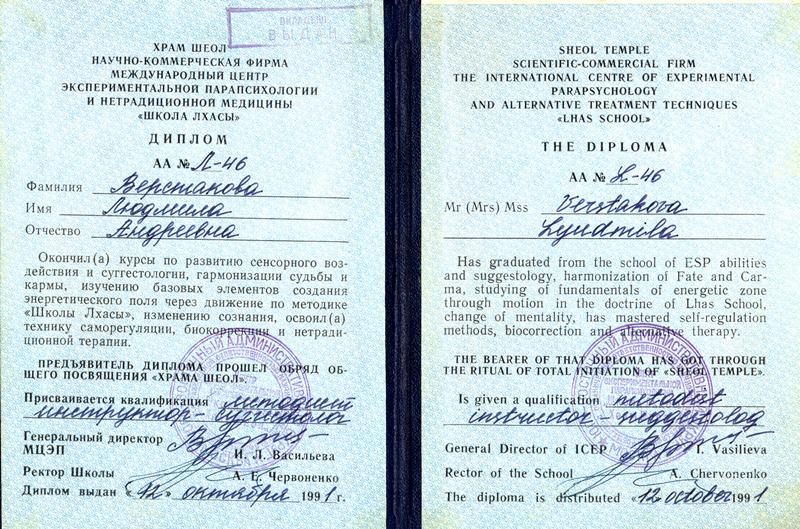 ВКЛАДЫШ
ВЫДАН
ХРАМ ШЕОЛ
НАУЧНО-КОММЕРЧЕСКАЯ ФИРМА
МЕЖДУНАРОДНЫЙ ЦЕНТР
ЭКСПЕРИМЕНТАЛЬНОЙ ПАРАПСИХОЛОГИИ
И НЕТРАДИЦИОННОЙ МЕДИЦИНЫ
«ШКОЛА ЛХАСЫ»
ДИПЛОМ
АА № Л-46
Фамилия Верстакова
Имя Людмила
Отчество Андреевна
Окончил(а) курсы по развитию сенсорного воз-
действия и суггестологии, гармонизации судьбы и
кармы, изучению базовых элементов создания
энергетического поля через движение по методике
«Школы Лхасы», изменению сознания, освоил(а)
технику саморегуляции, биокоррекции и нетради-
ционной терапии.
ПРЕДЪЯВИТЕЛЬ ДИПЛОМА ПРОШЕЛ ОБРЯД ОБ-
ЩЕГО ПОСВЯЩЕНИЯ «ХРАМА ШЕОЛ».
Присваивается квалификация методист
инструктор-суггестолог
Генеральный директор
МЦЭП И. Л. Васильева
Ректор Школы А. Е. Червоненко
Диплом выдан «12» октября 1991 г.
SHEOL TEMPLE
SCIENTIFIC-COMMERCIAL FIRM
THE INTERNATIONAL CENTRE OF EXPERIMENTAL
PARAPSYCHOLOGY
AND ALTERNATIVE TREATMENT TECHNIQUES
«LHAS SCHOOL»
THE DIPLOMA
АА № L-46
Mr (Mrs) Mss Verstakova
Lyudmila
Has graduated from the school of ESP abilities
and suggestology, harmonization of Fate and Car-
ma, studying of fundamentals of energetic zone
through motion in the doctrine of Lhas School,
change of mentality, has mastered self-regulation
methods, biocorrection and alternative therapy.
THE BEARER OF THAT DIPLOMA HAS GOT THROUGH
THE RITUAL OF TOTAL INITIATION OF «SHEOL TEMPLE».
Is given a qualification metodist
instructor-suggestolog
General Director of ICEP I. Vasilieva
Rector of the School A. Chervonenko
The diploma is distributed «12 october 1991